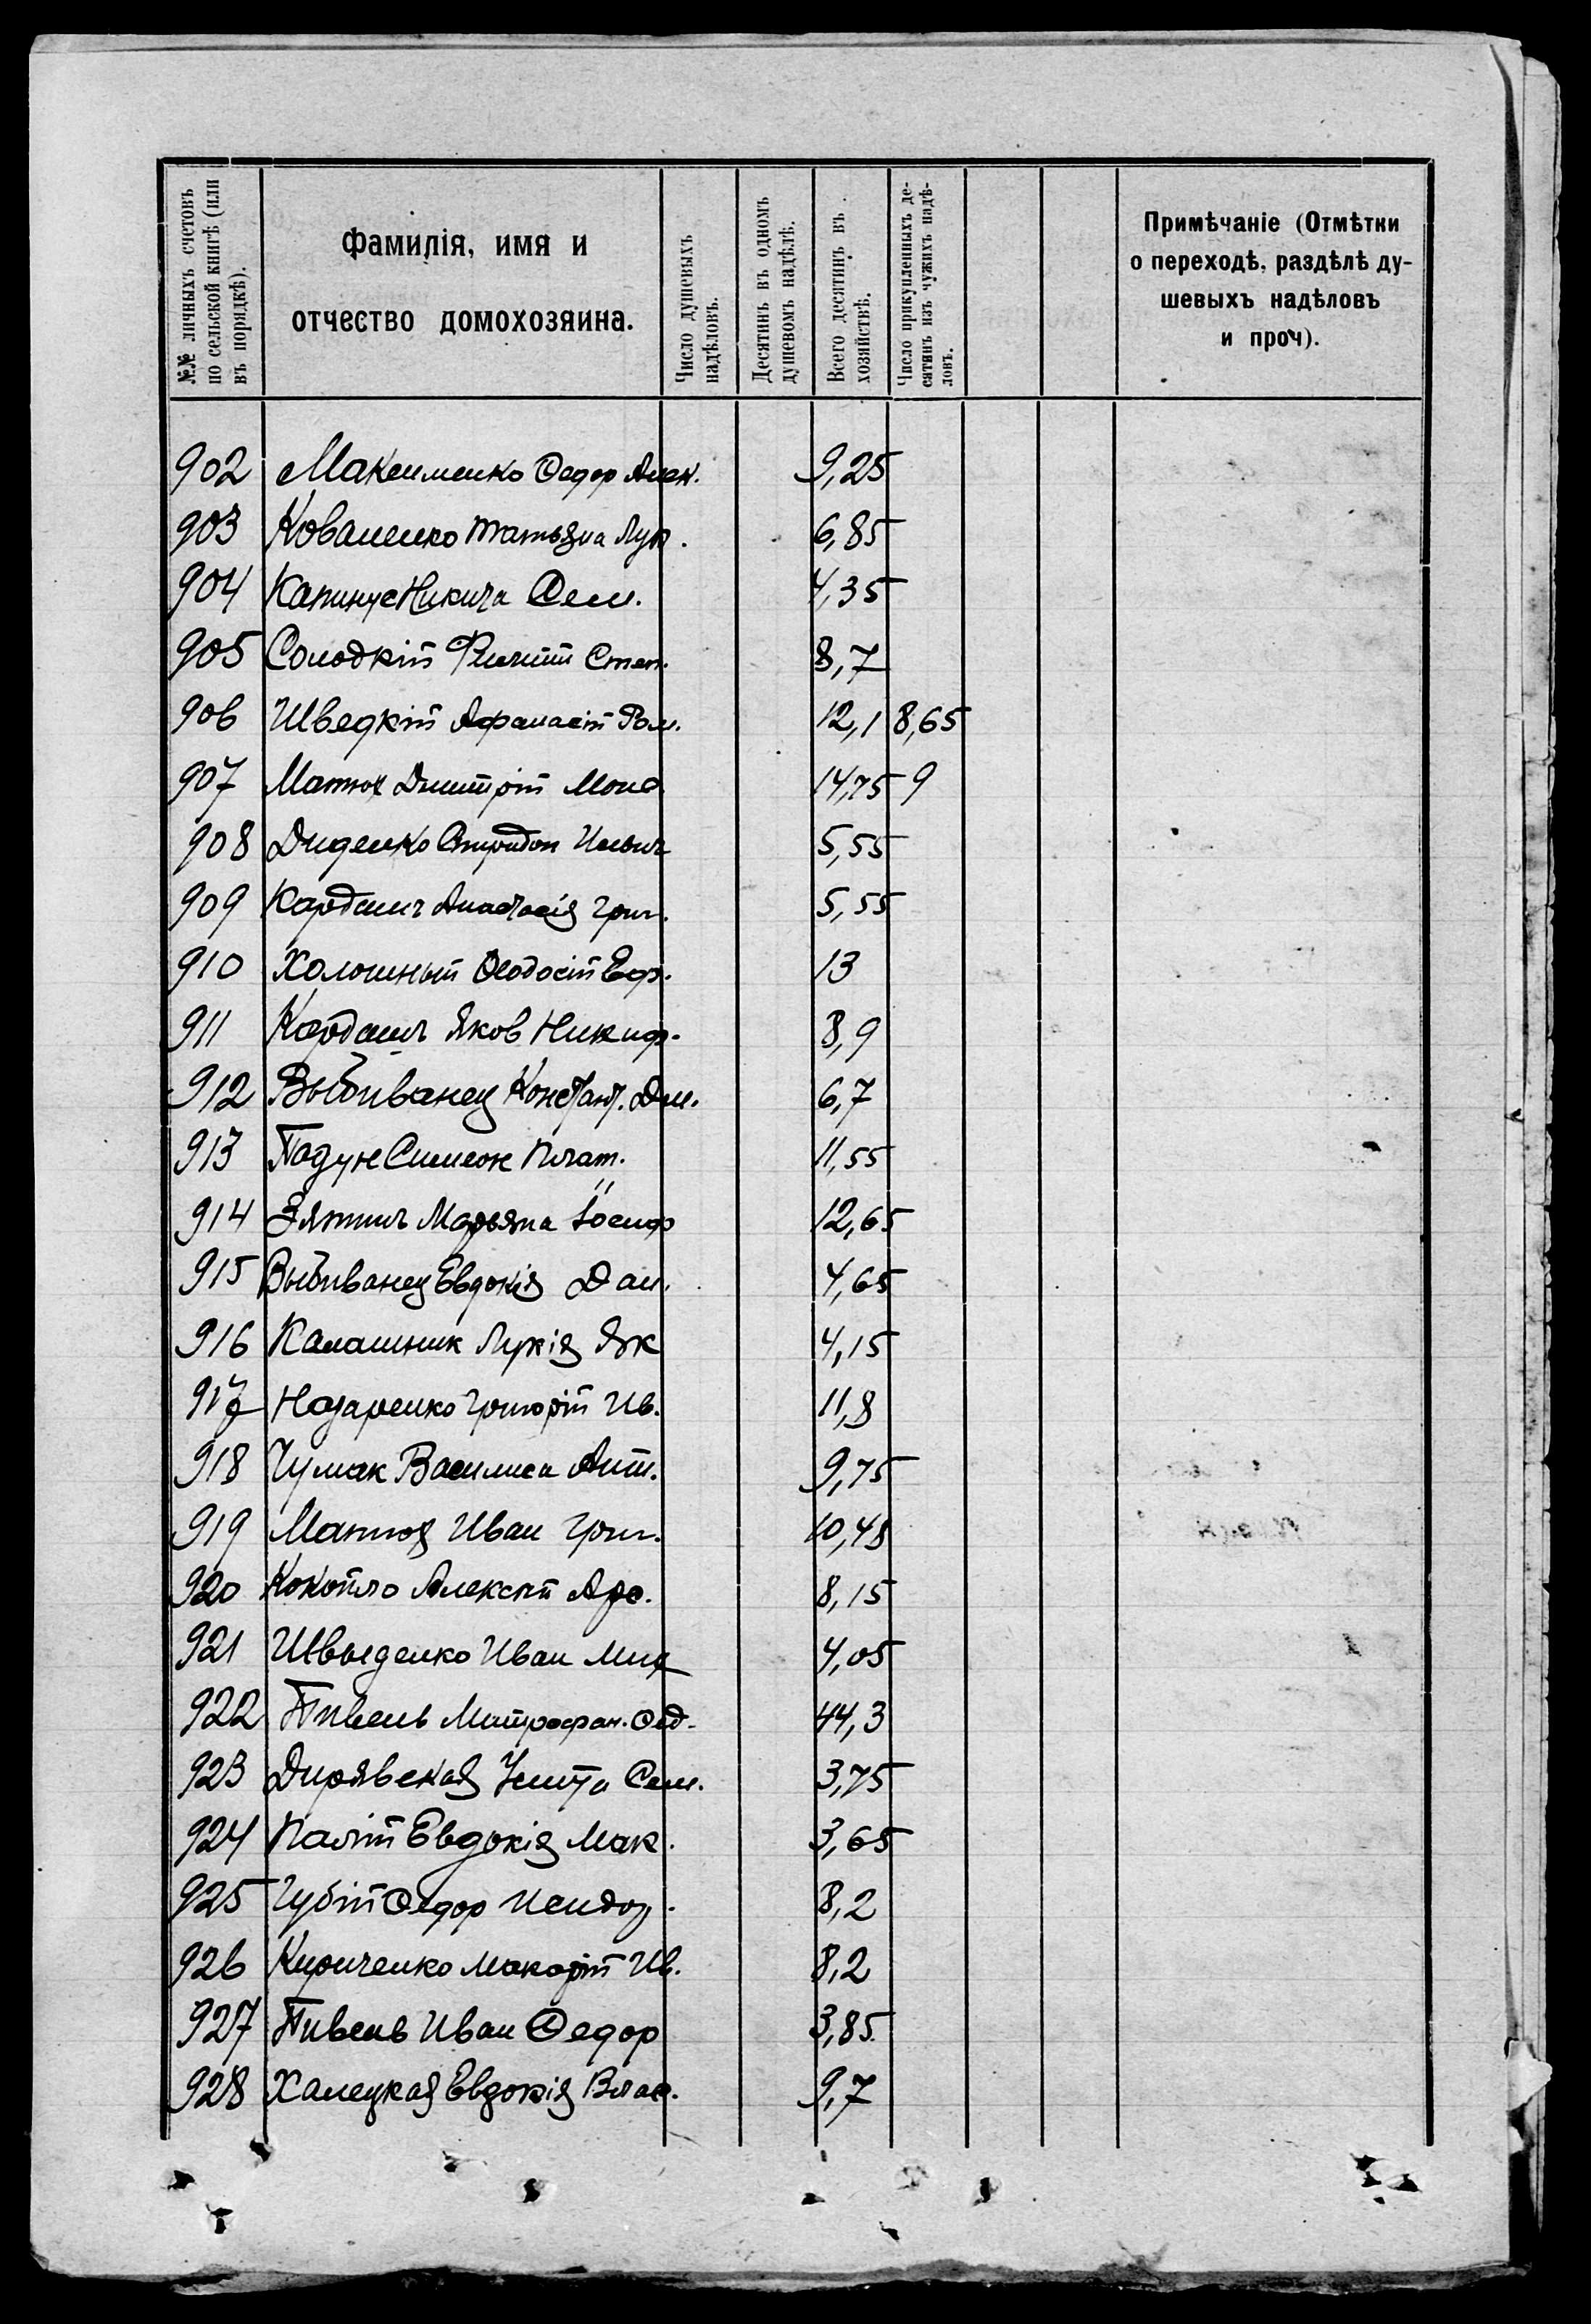 №№ личныхъ счетовъ по сельской книгѣ (или въ порядкѣ).
Фамилія, имя и отчество домохозяина.
Число душевыхъ надѣловъ.
Десятинъ въ одномъ душевомъ надѣлѣ.
Всего десятинъ въ хозяйствѣ.
Число прикупленныхъ десятинъ изъ чужихъ надѣловъ.
Примѣчаніе (Отмѣтки
о переходѣ, раздѣлѣ ду-
шевыхъ надѣловъ
и проч).
902 Максименко Федор Алек. 9,25
903 Коваленко Татьяна Лук. 6,85
904 Капинус Никита Сем. 4,35
905 Солодкій Филипп Степ. 8,7
906 Шведкій Афанасій Ром. 12,1 8,65
907 Матюх Дмитрій 14,75 9
908 Диденко Спиридон Ильич 5,55
909 Кардаш Анастасія Григ. 5,55
910 Холошный Феодосій Еф. 13
911 Кардаш Яков Никиф. 8,9
912 Выбиванец Констант. Дем. 6,7
913 Падун Симеон Плат. 11,55
914 Марьяна Іосиф 12,65
915 Выбиванец Евдокія Дан. 4,65
916 Калашник Лукія Як 4,15
917 Назаренко Григорій Ив. 11,8
918 Чумак Василиса Ант. 9,75
919 Матюх Иван Григ. 10,48
920 Кокойло Алексей 8,15
921 Шведенко Иван Мих 4,05
922 Пивень Митрофан. Фед. 44,3
923 Дирявская Улита Сем. 3,75
924 Палій Евдокія Мак. 3,65
925 Губій Федор Исидор. 8,2
926 Кириченко Макарій Ив. 8,2
927 Пивень Иван Федор 3,85
928 Халецкая Евдокія Влас. 9,7